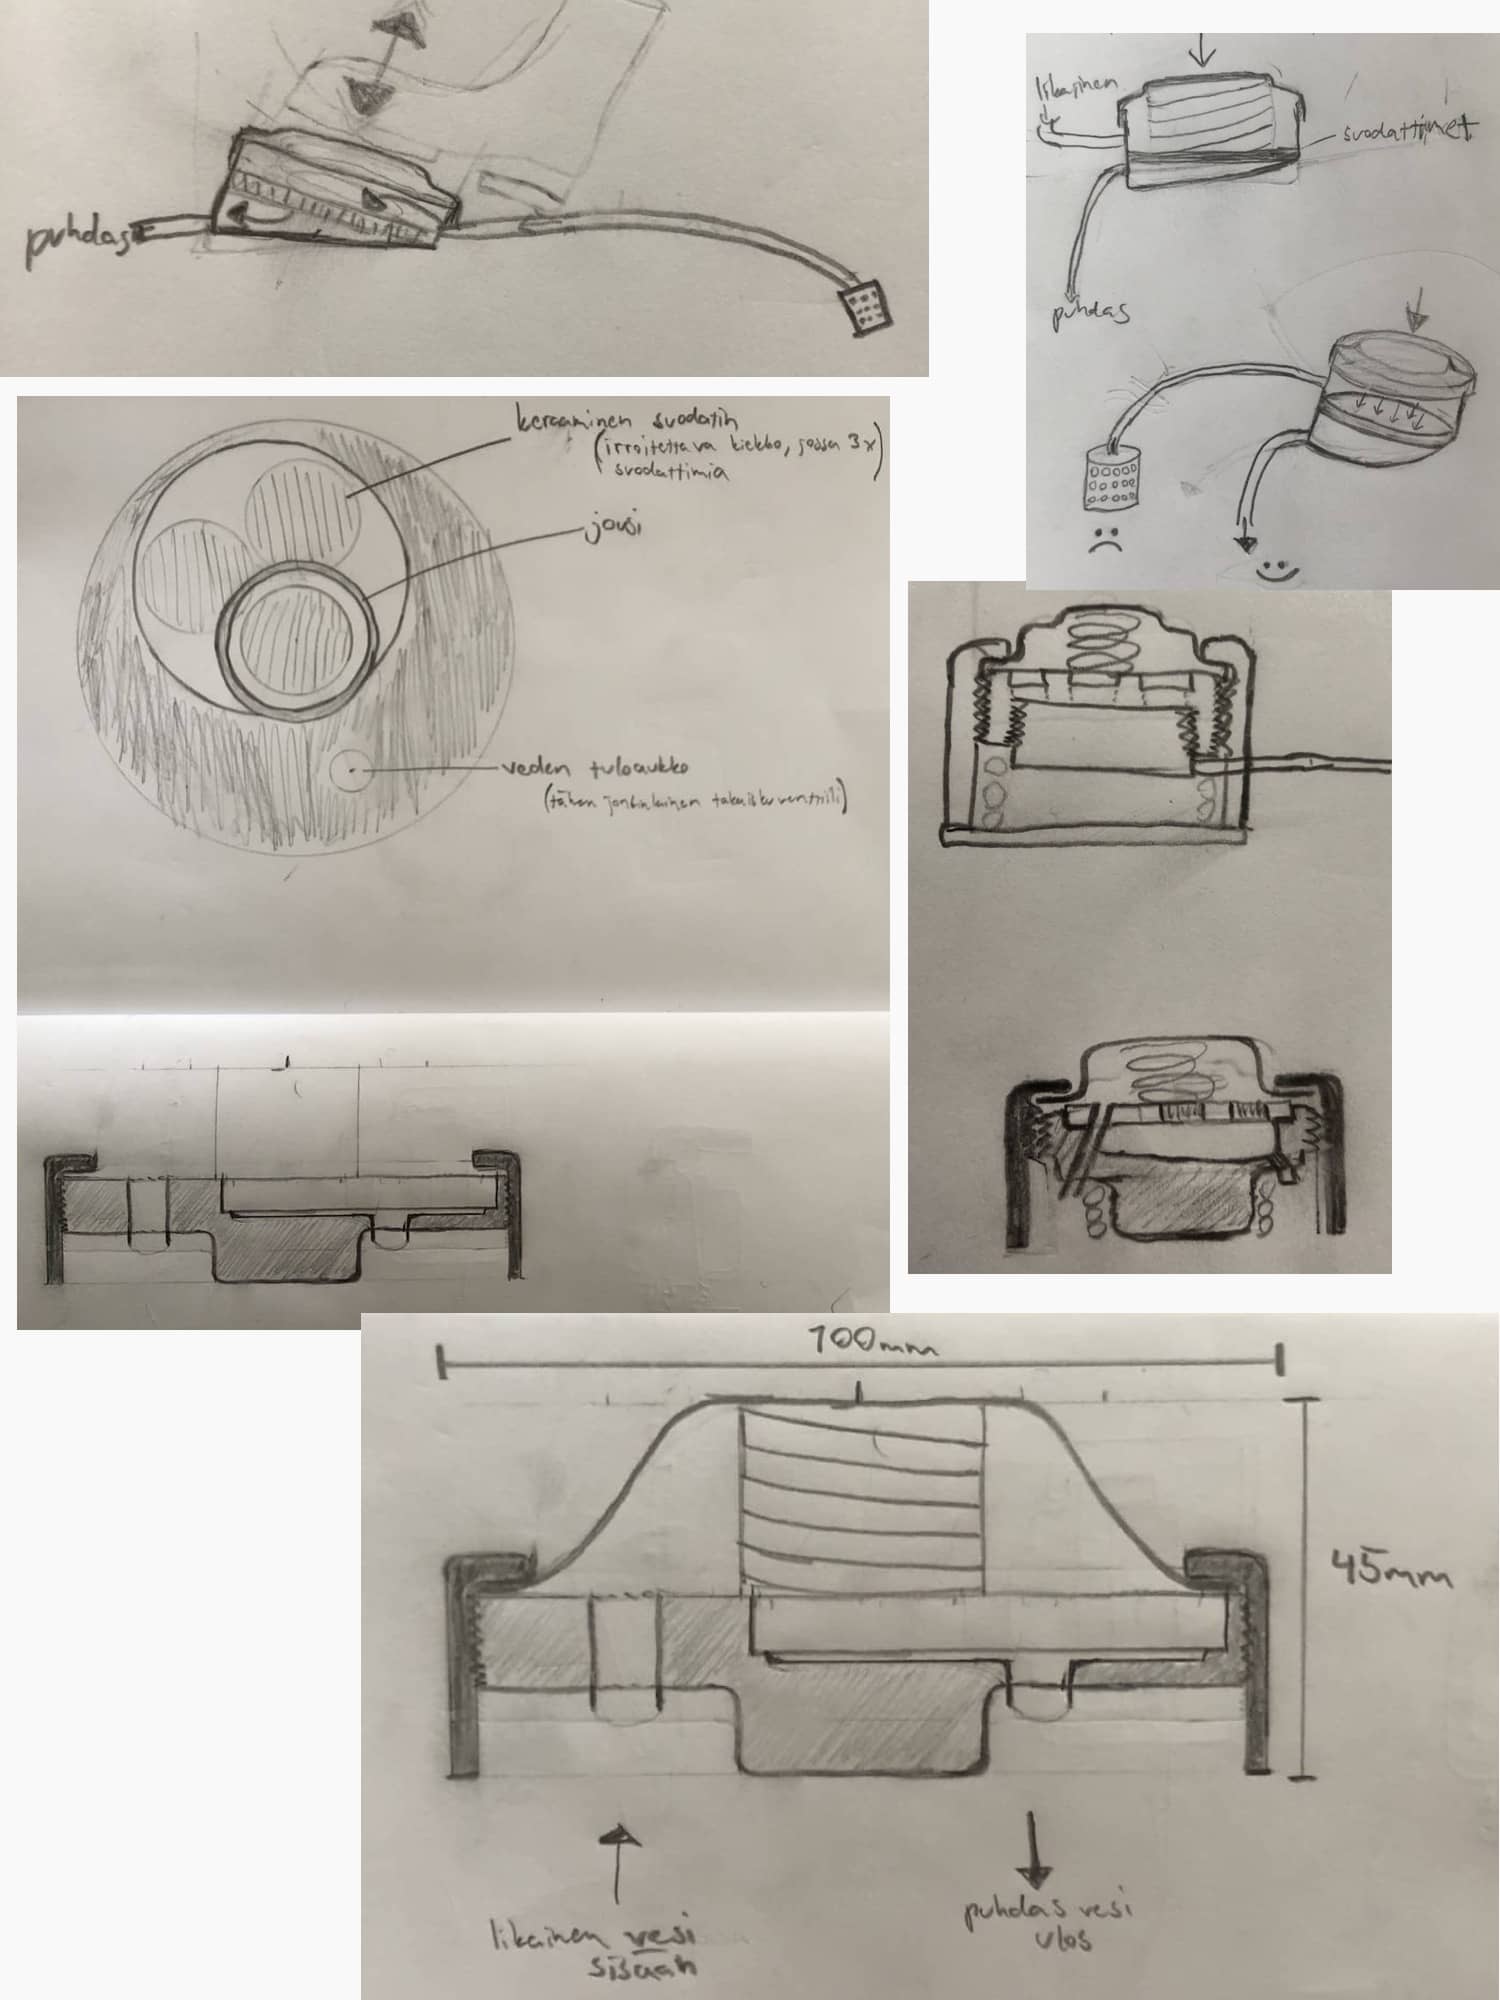 puhdas
likainen
suodattimet
puhdas
keraaminen suodatin
(irroitettava kiekko, jossa 3x
suodattimia)
jousi
veden tuloaukko
(tähän jonkinlainen takaiskuventtiili)
100mm
45mm
likainen vesi
sisään
puhdas vesi
ulos